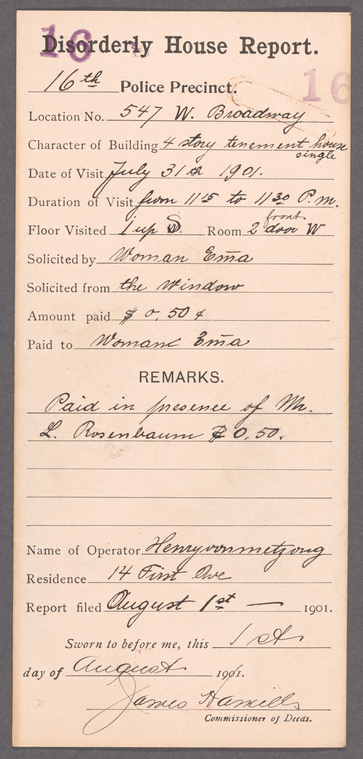 16
Disorderly House Report.
16th Police Precinct.
16
Location No. 547 W. Broadway
Character of Building 4 story tenement house
single
Date of Visit July 31st 1901.
Duration of Visit from 11 15 to 11 30 P.m.
Floor Visited 1 up S. Room 2 door W
front
Solicited by Woman Em̄a
Solicited from the Window
Amount paid $ 0,50 ¢
Paid to Woman Em̄a
REMARKS.
Paid in presence of Mr.
L. Rosenbaum $ 0.50.
Name of Operator Henry von
Residence 14 First Ave
Report filed August 1st — 1901.
Sworn to before me, this 1st
day of August 1901.
James
Commissioner of Deeds.